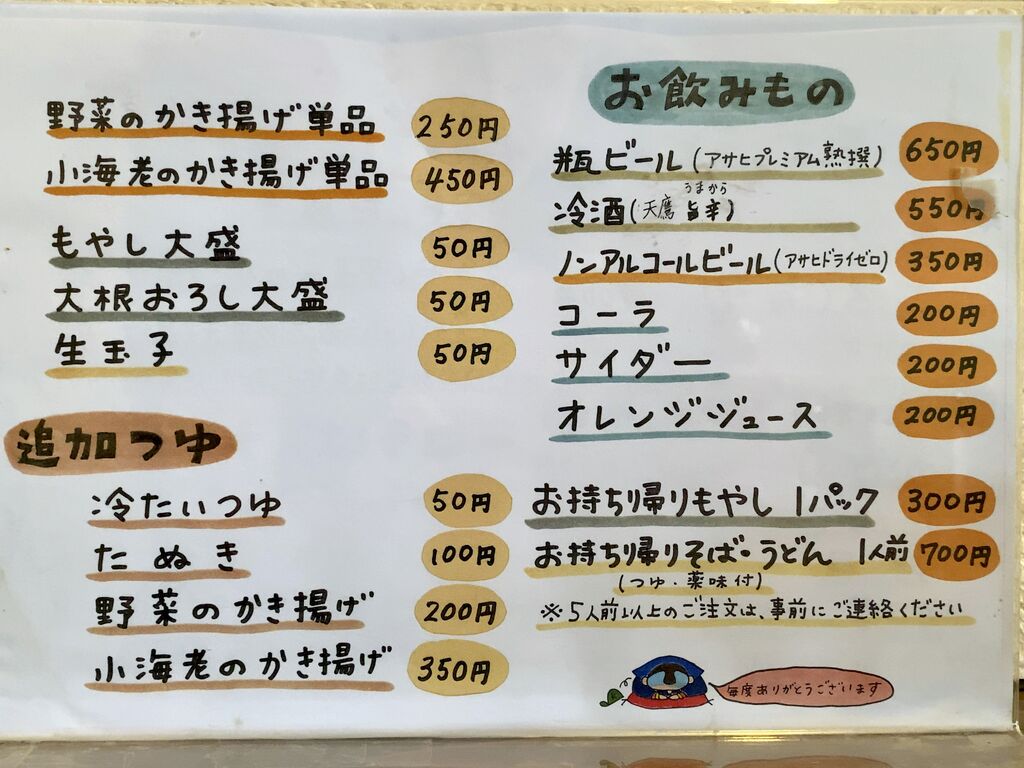 野菜のかき揚げ単品 250円
小海老のかき揚げ単品 450円
もやし大盛 50円
大根おろし大盛 50円
生玉子 50円
追加つゆ
冷たいつゆ 50円
たぬき 100円
野菜のかき揚げ 200円
小海老のかき揚げ 350円
お飲みもの
瓶ビール(アサヒプレミアム熟撰) 650円
うまから
冷酒(天鷹 旨辛) 550円
ノンアルコールビール(アサヒドライゼロ) 350円
コーラ 200円
サイダー 200円
オレンジジュース 200円
お持ち帰りもやし 1パック 300円
お持ち帰りそば・うどん 1人前 700円
(つゆ・薬味付)
※5人前以上のご注文は、事前にご連絡ください
毎度ありがとうございます